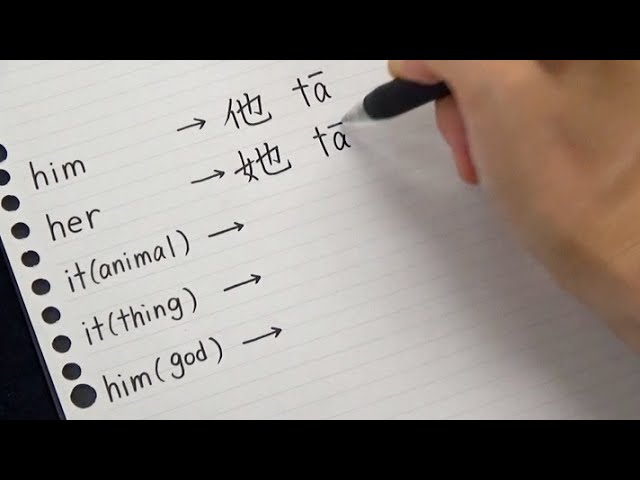 him → 他 tā
her → 她 tā
it(animal) →
it(thing) →
him(god) →